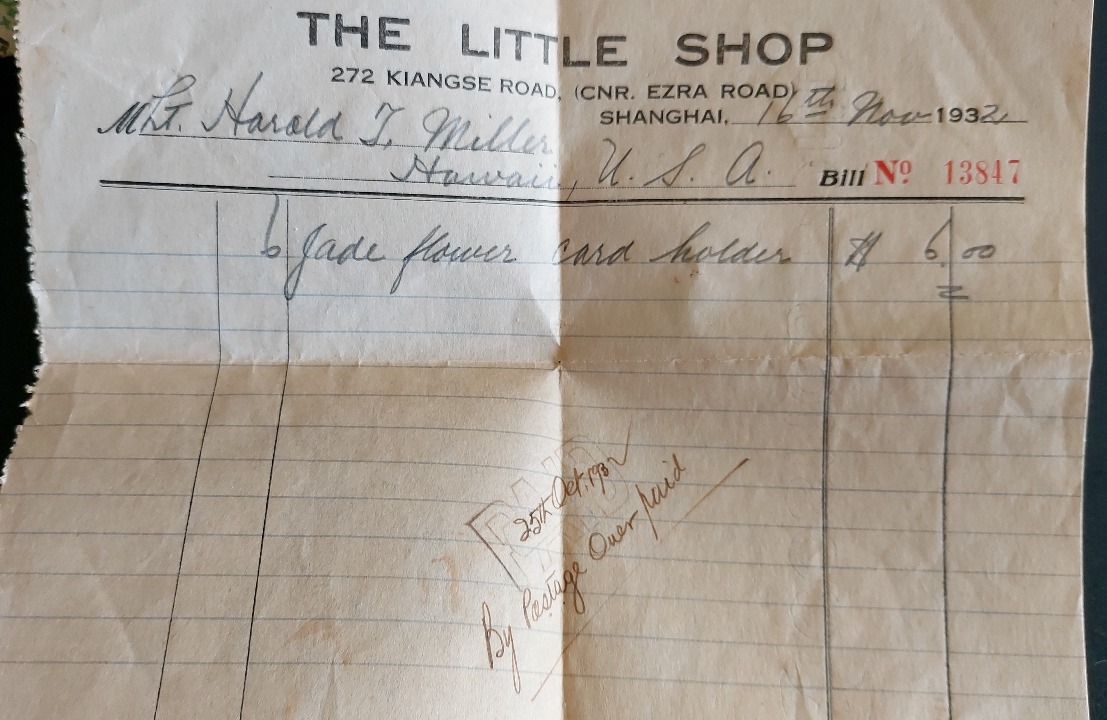 THE LITTLE SHOP
272 KIANGSE ROAD, (CNR. EZRA ROAD)
SHANGHAI, 16th Nov 1932
Lt. Harold T. Miller
Hawaii, U. S. A. Bill No 13847
6 Jade flower card holder $ 6.00
PAID
25th Oct. 1932
By Postage Over paid